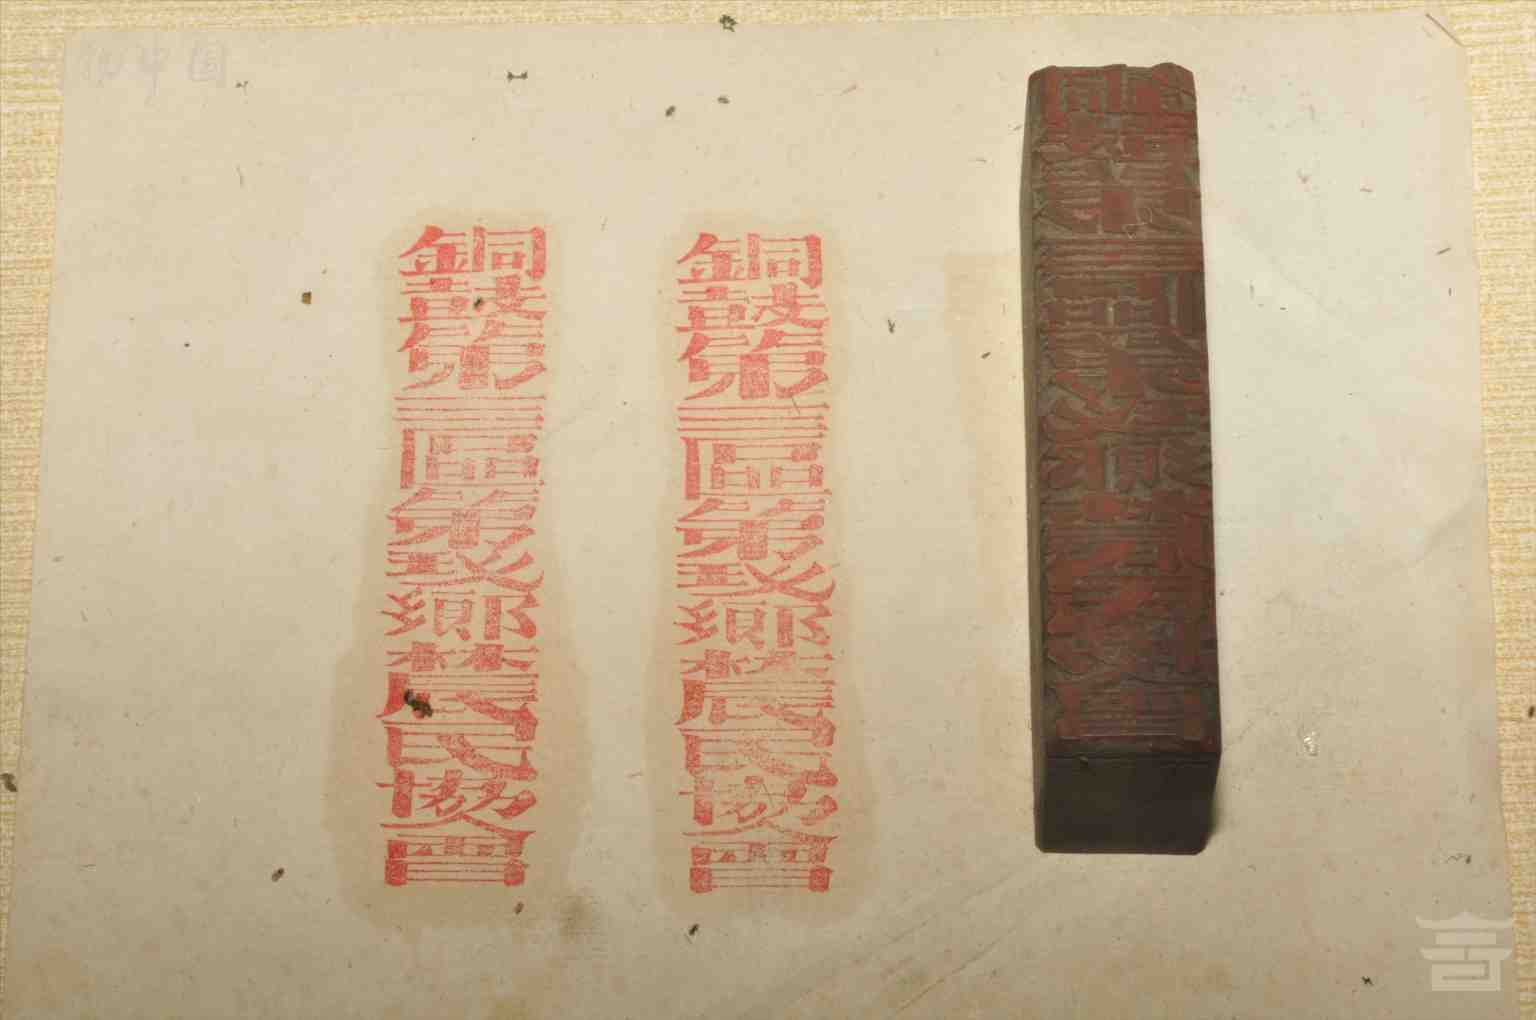 物中国
銅鼓第三區第鄉農民協會
銅鼓第三區第鄉農民協會